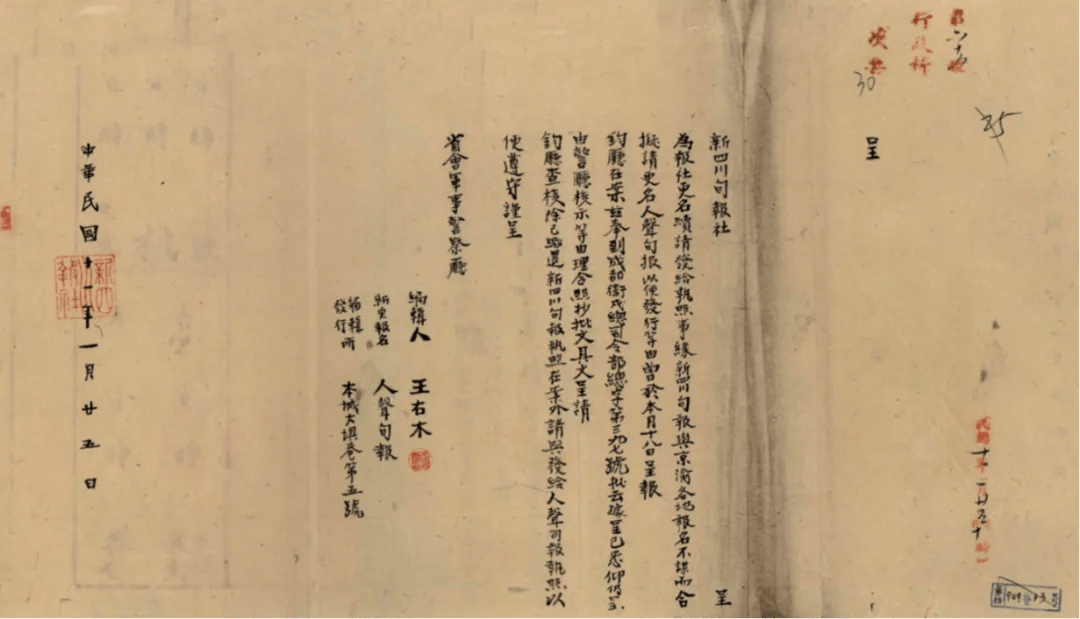 行政科
30
呈
新四川旬報社 呈
為報社更名續請發給執照事緣新四川旬報與京滬各地報名不謀而合
擬請更名人聲旬报以便發行等由曾於本月十八日呈報
鈞廳在案茲奉到成都衛戍總司令部總字第三九七號批云據呈已悉仰仍呈
由警廳核示等由理合照抄批文具文呈請
鈞廳查核除已繳還新四川旬報執照在案外請與發給人聲旬報執照以
便遵守謹呈
省會軍事警察廳
編輯人 王右木
新更報名 人聲旬報
編輯發行所 本城大琪巷第五號
中華民國十一年一月廿五日